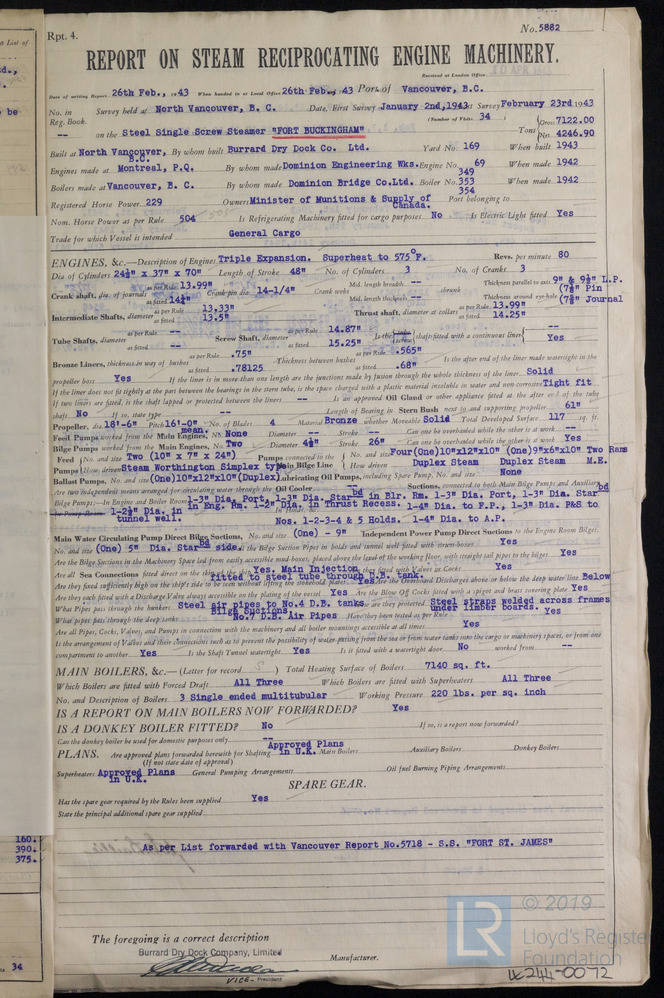 Rpt. 4.
No. 5882
REPORT ON STEAM RECIPROCATING ENGINE MACHINERY.
Received at London Office
Date of writing Report 26th Feb., 1943 When handed in at Local Office 26th Feb., 43 Port of Vancouver, B.C.
No. in Survey held at North Vancouver, B. C. Date, First Survey January 2nd, 1943 Survey February 23rd 1943
Reg. Book. (Number of Visits 34 )
-- on the Steel Single Screw Steamer "FORT BUCKINGHAM" Tons Gross 7122.00
Net 4246.90
Built at North Vancouver, B.C. By whom built Burrard Dry Dock Co. Ltd. Yard No. 169 When built 1943
Engines made at Montreal, P.Q. By whom made Dominion Engineering Wks. Engine No. 69 When made 1942
Boilers made at Vancouver, B. C. By whom made Dominion Bridge Co.Ltd. Boiler No. 349 353 354 When made 1942
Registered Horse Power 229 Owners Minister of Munitions & Supply of Canada. Port belonging to
Nom. Horse Power as per Rule 504 Is Refrigerating Machinery fitted for cargo purposes No Is Electric Light fitted Yes
Trade for which Vessel is intended General Cargo
ENGINES, &c.—Description of Engines Triple Expansion. Superheat to 575°F. Revs. per minute 80
Dia of Cylinders 24½" x 37" x 70" Length of Stroke 48" No. of Cylinders 3 No. of Cranks 3
Crank shaft, dia. of journals as per Rule 13.99" as fitted 14¼" Crank pin dia. 14-1/4" Crank webs Mid. length breadth -- Mid. length thickness -- shrunk Thickness parallel to axis 9" & 9½" L.P. (7⅞" Pin Thickness around eye-hole (7⅞" Journal
Intermediate Shafts, diameter as per Rule 13.33" as fitted 13.5" Thrust shaft, diameter at collars as per Rule 13.99" as fitted 14.25"
Tube Shafts, diameter as per Rule -- as fitted -- Screw Shaft, diameter as per Rule 14.87" as fitted 15.25" Is the screw shaft fitted with a continuous liner -- Yes
Bronze Liners, thickness in way of bushes as per Rule .75" as fitted .78125 Thickness between bushes as per Rule .565" as fitted .68" Is the after end of the liner made watertight in the
propeller boss Yes If the liner is in more than one length are the junctions made by fusion through the whole thickness of the liner Solid
If the liner does not fit tightly at the part between the bearings in the stern tube, is the space charged with a plastic material insoluble in water and non-corrosive Tight fit
If two liners are fitted, is the shaft lapped or protected between the liners -- Is an approved Oil Gland or other appliance fitted at the after end of the tube
shaft No If so, state type -- Length of Bearing in Stern Bush next to and supporting propeller 61"
Propeller, dia. 18'-6" Pitch 16'-0" mean. No. of Blades 4 Material Bronze whether Moveable Solid Total Developed Surface 117 sq. ft.
Feed Pumps worked from the Main Engines, No. None Diameter -- Stroke -- Can one be overhauled while the other is at work --
Bilge Pumps worked from the Main Engines, No. Two Diameter 4½" Stroke 26" Can one be overhauled while the other is at work Yes
Feed Pumps No. and size Two (10" x 7" x 24") How driven Steam Worthington Simplex type Pumps connected to the Main Bilge Line No. and size Four(One)10"x12"x10" (One)9"x6"x10" Two Rams
How driven Duplex Steam Duplex Steam M.E.
Ballast Pumps, No. and size (One)10"x12"x10"(Duplex) Lubricating Oil Pumps, including Spare Pump, No. and size None
Are two independent means arranged for circulating water through the Oil Cooler -- Suctions, connected to both Main Bilge Pumps and Auxiliary
Bilge Pumps:—In Engine and Boiler Room 1-3" Dia. Port, 1-3" Dia. Starbd in Blr. Rm. 1-3" Dia. Port, 1-3" Dia. Starbd
In Pump Room 1-2½" Dia. in in Eng. Rm. 1-2" Dia. in Thrust Recess. 1-4" Dia. to F.P., 1-3" Dia. P&S to
tunnel well. In Holds, &c. Nos. 1-2-3-4 & 5 Holds. 1-4" Dia. to A.P.
Main Water Circulating Pump Direct Bilge Suctions, No. and size (One) - 9" Independent Power Pump Direct Suctions to the Engine Room Bilges,
No. and size (One) 5" Dia. Starbd side. Are all the Bilge Suction Pipes in holds and tunnel well fitted with strum-boxes Yes
Are the Bilge Suctions in the Machinery Space led from easily accessible mud-boxes, placed above the level of the working floor, with straight tail pipes to the bilges Yes
Are all Sea Connections fitted direct on the skin of the ship Yes. Main Injection fitted to steel tube through D.B. tank. Are they fitted with Valves or Cocks Yes
Are they fixed sufficiently high on the ship's side to be seen without lifting the stokehold plates Yes Are the Overboard Discharges above or below the deep water line Below
Are they each fitted with a Discharge Valve always accessible on the plating of the vessel Yes Are the Blow Off Cocks fitted with a spigot and brass covering plate Yes
What Pipes pass through the bunkers Steel air pipes to No.4 D.B. tanks How are they protected Steel straps welded across frames under timber boards.
What pipes pass through the deep tanks Bilge Suctions. No.7 D.B. Air Pipes Have they been tested as per Rule Yes
Are all Pipes, Cocks, Valves, and Pumps in connection with the machinery and all boiler mountings accessible at all times Yes
Is the arrangement of Valves and their connections such as to prevent the possibility of water passing from the sea or from water tanks into the cargo or machinery spaces, or from one
compartment to another Yes Is the Shaft Tunnel watertight Yes Is it fitted with a watertight door No worked from --
MAIN BOILERS, &c.—(Letter for record S ) Total Heating Surface of Boilers 7140 sq. ft.
Which Boilers are fitted with Forced Draft All Three Which Boilers are fitted with Superheaters All Three
No. and Description of Boilers 3 Single ended multitubular Working Pressure 220 lbs. per sq. inch
IS A REPORT ON MAIN BOILERS NOW FORWARDED? Yes
IS A DONKEY BOILER FITTED? No If so, is a report now forwarded?
Can the donkey boiler be used for domestic purposes only --
PLANS. Are approved plans forwarded herewith for Shafting Approved Plans in U.K. Main Boilers Auxiliary Boilers Donkey Boilers
(If not state date of approval)
Superheaters Approved Plans in U.K. General Pumping Arrangements Oil fuel Burning Piping Arrangements
SPARE GEAR.
Has the spare gear required by the Rules been supplied Yes
State the principal additional spare gear supplied
As per List forwarded with Vancouver Report No.5718 - S.S. "FORT ST. JAMES"
160.
390.
375.
34
The foregoing is a correct description
Burrard Dry Dock Company, Limited
Manufacturer.
VICE- President
© 2019
LR
Lloyd's Register
Foundation
LE244-0072